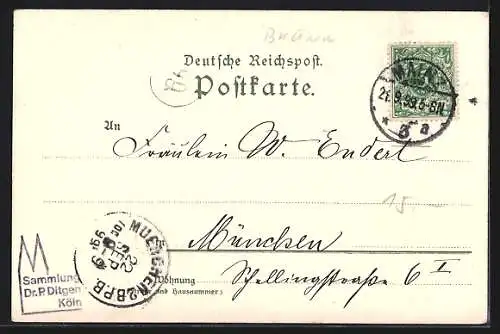 Braun
Deutsche Reichspost.
Postkarte.
MAINZ
21.9.99.5-6N.
* 3a *
An
Fräulein W. Endert
15.-
München
MUENCHEN
22
SEP
99
2.B.P.B.
Wohnung
(Straße und Hausnummer)
Schellingstraße 6 I
M
Sammlung
Dr. P. Ditgen
Köln